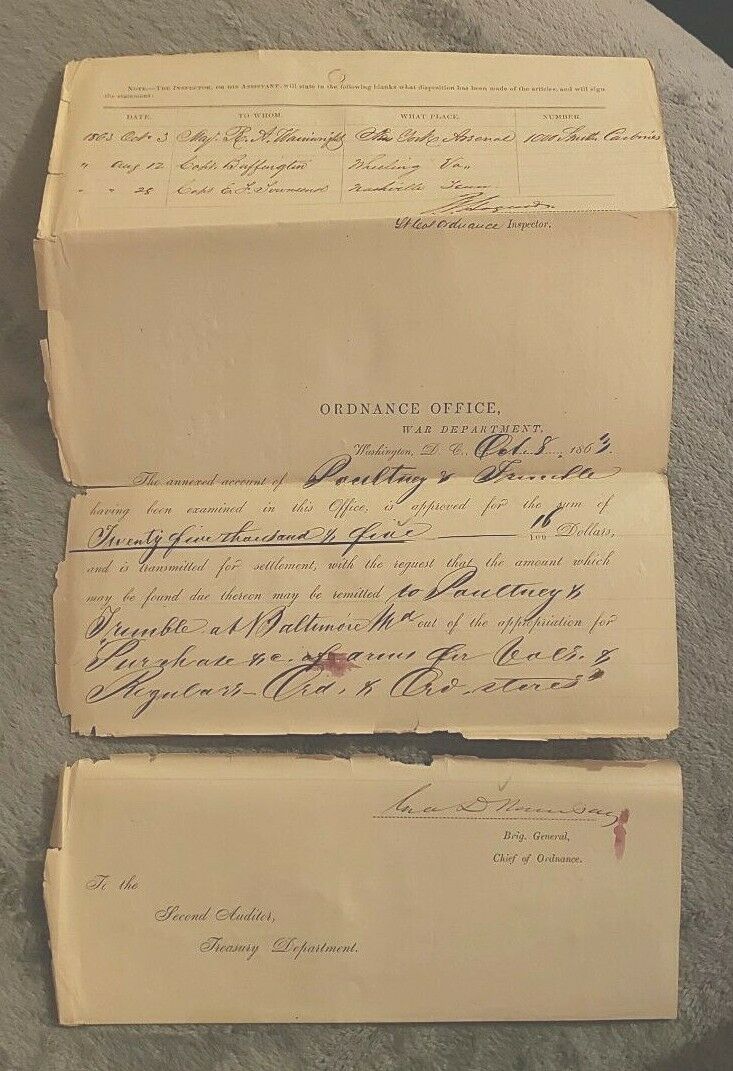 NOTE.—THE INSPECTOR, OR HIS ASSISTANT, will state in the following blanks what disposition has been made of the articles, and will sign
the statement:
DATE. TO WHOM. WHAT PLACE. NUMBER.
1863 Oct 3 Maj. R. A. Wainwright New York Arsenal 1000 Smith Carbines
" Aug 12 Capt. Buffington Wheeling Va
" " 25 Capt E. F. Townsend Nashville Tenn
Lt Col Ordnance Inspector.
ORDNANCE OFFICE,
WAR DEPARTMENT,
Washington, D. C., Oct. 8, 1863.
The annexed account of Poultney & Trimble
having been examined in this Office, is approved for the sum of
Twenty five thousand & five 16/100 Dollars,
and is transmitted for settlement, with the request that the amount which
may be found due thereon may be remitted to Poultney &
Trimble at Baltimore Md out of the appropriation for
"Purchase &c. of arms for Vols. &
Regulars – Ord. & Ord. stores"
Geo D Ramsay
Brig. General,
Chief of Ordnance.
To the
Second Auditor,
Treasury Department.